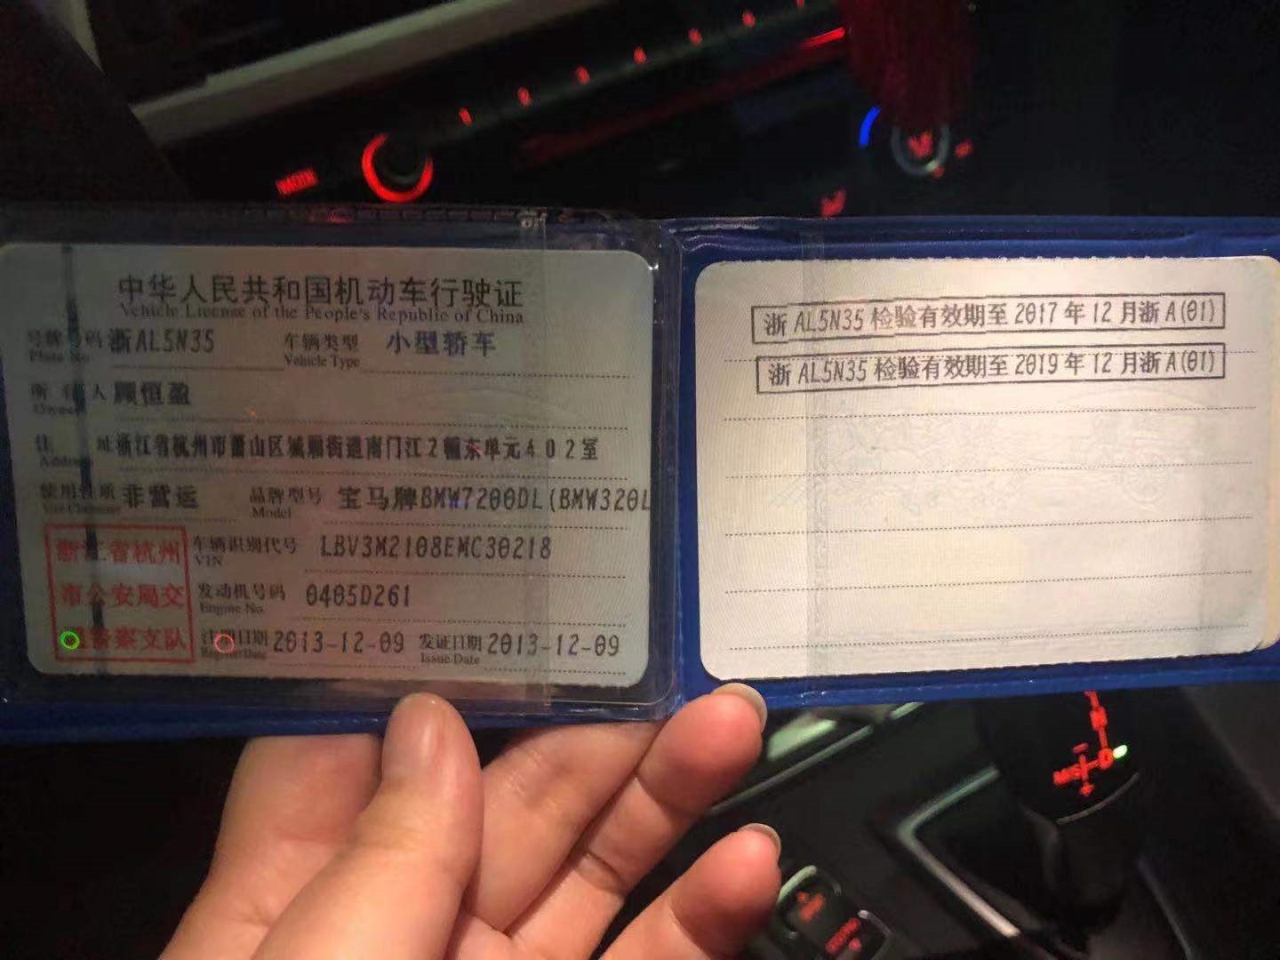 中华人民共和国机动车行驶证
Vehicle License of the People's Republic of China
号牌号码 浙AL5N35 车辆类型 小型轿车
Plate No. Vehicle Type
所有人 顾恒盈
Owner
住 址 浙江省杭州市萧山区城厢街道南门江2幢东单元402室
Address
使用性质 非营运 品牌型号 宝马牌BMW7200DL(BMW320L
Use Character Model
浙江省杭州
市公安局交
通警察支队
车辆识别代号 LBV3M2108EMC30218
VIN
发动机号码 0405D261
Engine No.
注册日期 2013-12-09 发证日期 2013-12-09
Register Date Issue Date
浙AL5N35检验有效期至2017年12月浙A(01)
浙AL5N35检验有效期至2019年12月浙A(01)